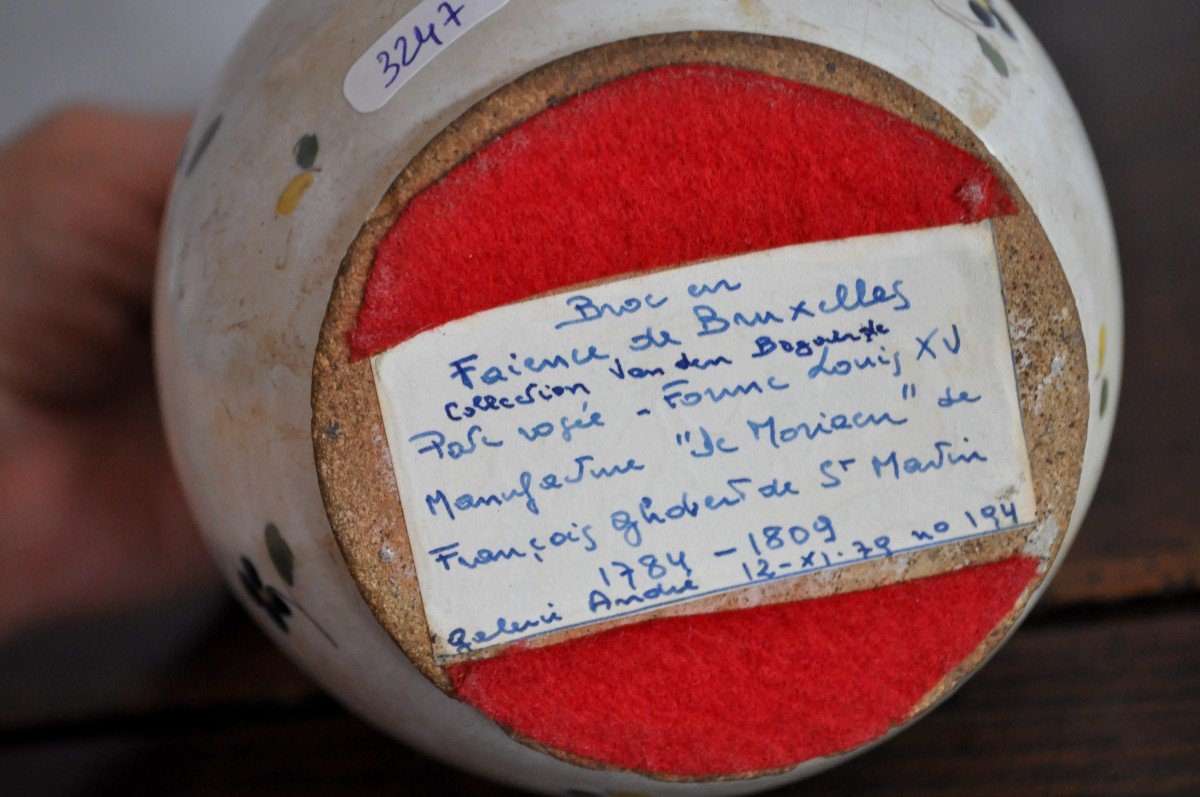 3247
Broc en
Faience de Bruxelles
Collection Van den
Pate rosée - Forme Louis XV
Manufacture "de Moriaen" de
François Ghobert de St Martin
1784 - 1809
Galerie André 12-XI-79 no 194